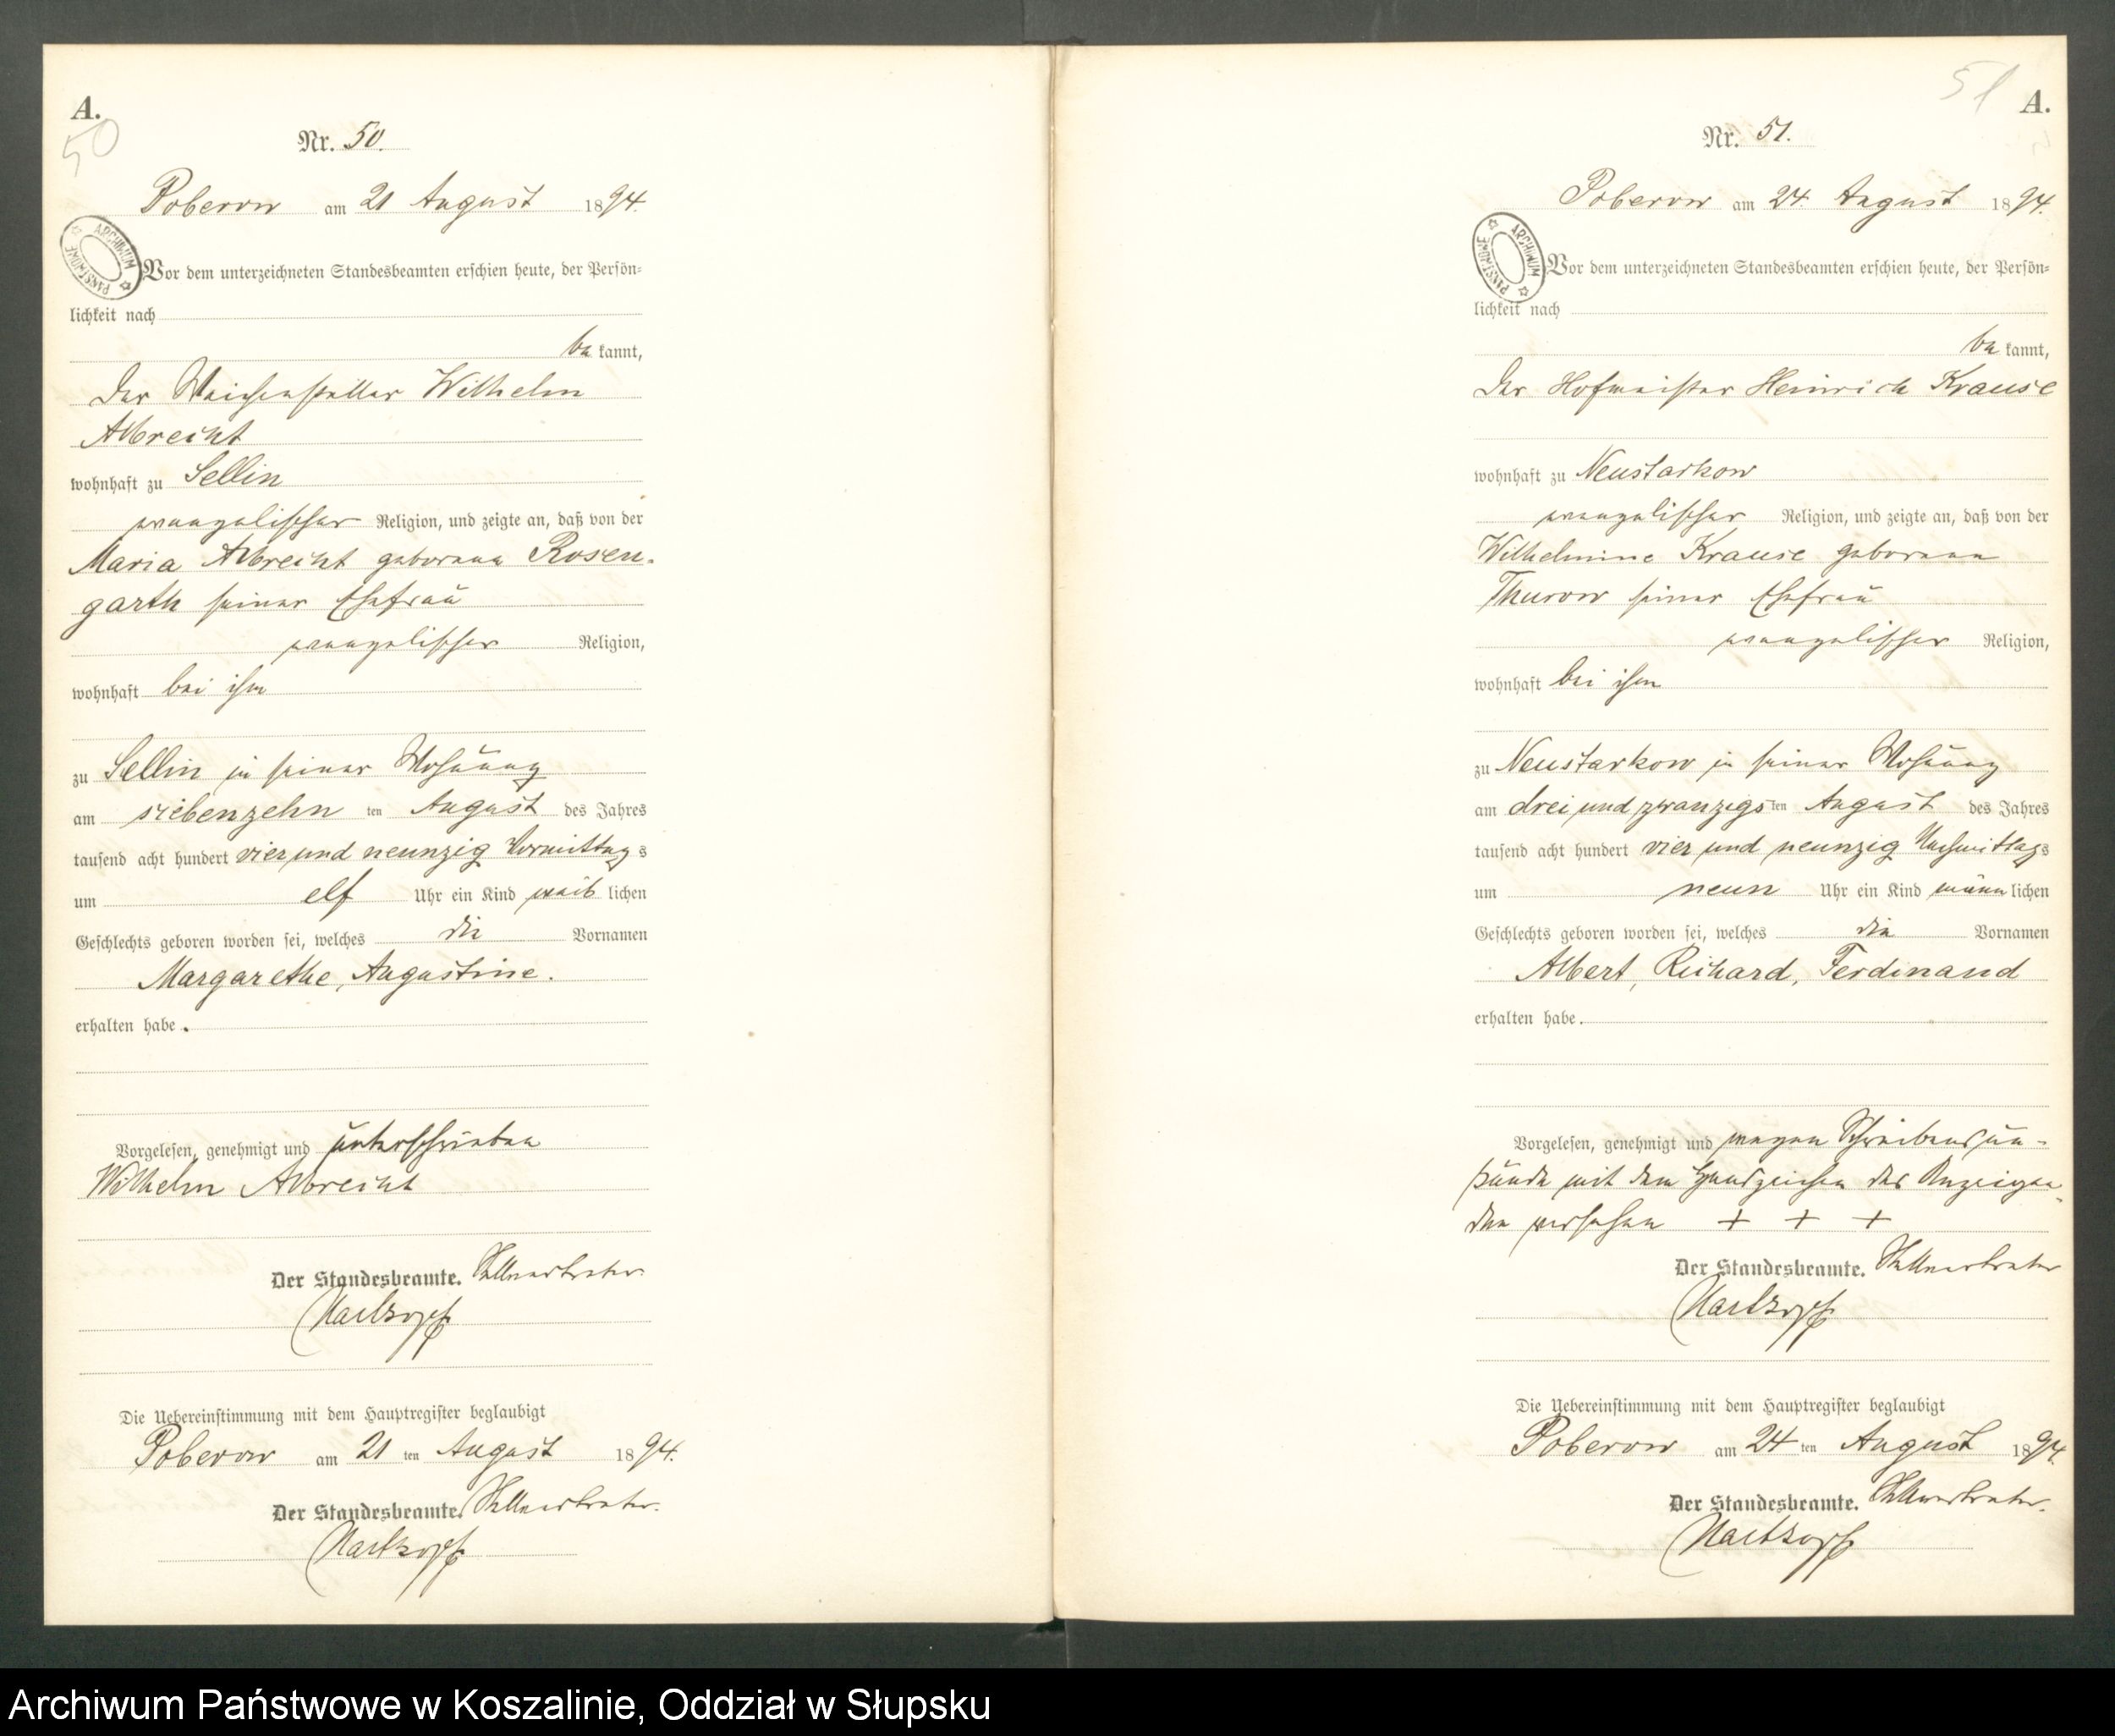 A.
50
Nr. 50.
Poberow am 21 August 1894.
ARCHIWUM PAŃSTWOWE
Vor dem unterzeichneten Standesbeamten erschien heute, der Persön=
lichkeit nach
be kannt,
der Weichensteller Wilhelm
Albrecht
wohnhaft zu Sellin
evangelischer Religion, und zeigte an, daß von der
Maria Albrecht geborene Rosen-
garth seiner Ehefrau
evangelischer Religion,
wohnhaft bei ihm
zu Sellin in seiner Wohnung
am siebenzehn ten August des Jahres
tausend acht hundert vier und neunzig Vormittag s
um elf Uhr ein Kind weib lichen
Geschlechts geboren worden sei, welches die Vornamen
Margarethe, Augustine.
erhalten habe.
Vorgelesen, genehmigt und unterschrieben
Wilhelm Albrecht
Der Standesbeamte. Stellvertreter
Nartzopff
Die Uebereinstimmung mit dem Hauptregister beglaubigt
Poberow am 21 ten August 1894.
Der Standesbeamte. Stellvertreter.
Nartzopff
51
A.
Nr. 51.
Poberow am 24 August 1894.
ARCHIWUM PAŃSTWOWE
Vor dem unterzeichneten Standesbeamten erschien heute, der Persön=
lichkeit nach
be kannt,
der Hofmeister Heinrich Krause
wohnhaft zu Neustarkow
evangelischer Religion, und zeigte an, daß von der
Wilhelmine Krause geborene
Thurow seiner Ehefrau
evangelischer Religion,
wohnhaft bei ihm
zu Neustarkow in seiner Wohnung
am drei und zwanzigs ten August des Jahres
tausend acht hundert vier und neunzig Nachmittag s
um neun Uhr ein Kind männ lichen
Geschlechts geboren worden sei, welches die Vornamen
Albert, Richard, Ferdinand
erhalten habe.
Vorgelesen, genehmigt und wegen Schreibensun-
kunde mit dem Handzeichen des Anzeigen-
den versehen + + +
Der Standesbeamte. Stellvertreter
Nartzopff
Die Uebereinstimmung mit dem Hauptregister beglaubigt
Poberow am 24 ten August 1894.
Der Standesbeamte. Stellvertreter.
Nartzopff
Archiwum Państwowe w Koszalinie, Oddział w Słupsku